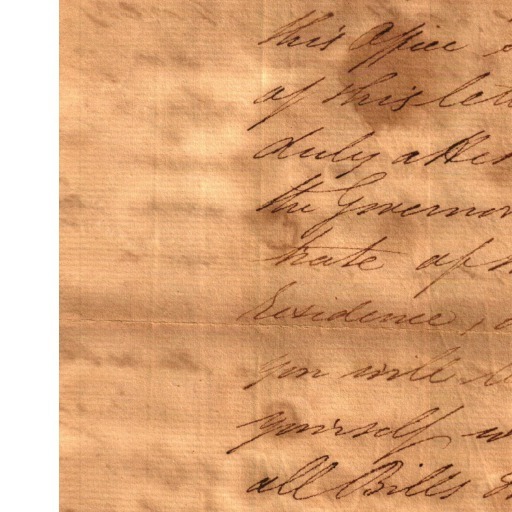 this Office
of this
duly
the Governor
trate of
Residence,
you will
yourself
all Bills